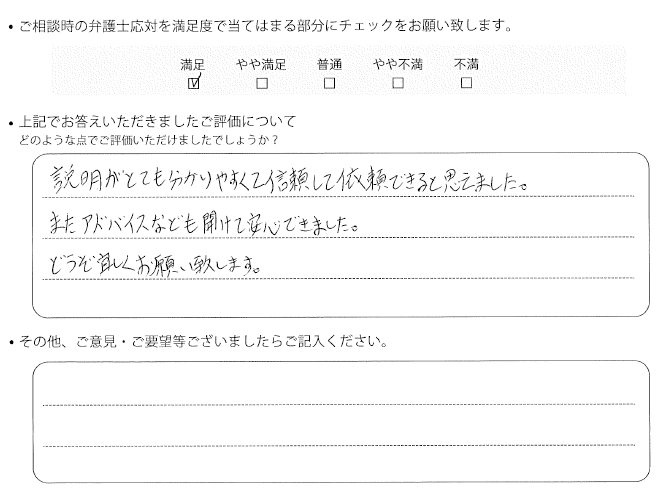 • ご相談時の弁護士応対を満足度で当てはまる部分にチェックをお願い致します。
満足 やや満足 普通 やや不満 不満
☑ ☐ ☐ ☐ ☐
• 上記でお答えいただきましたご評価について
どのような点でご評価いただけましたでしょうか？
説明がとても分かりやすくて信頼して依頼できると思えました。
またアドバイスなども聞けて安心できました。
どうぞ宜しくお願い致します。
• その他、ご意見・ご要望等ございましたらご記入ください。